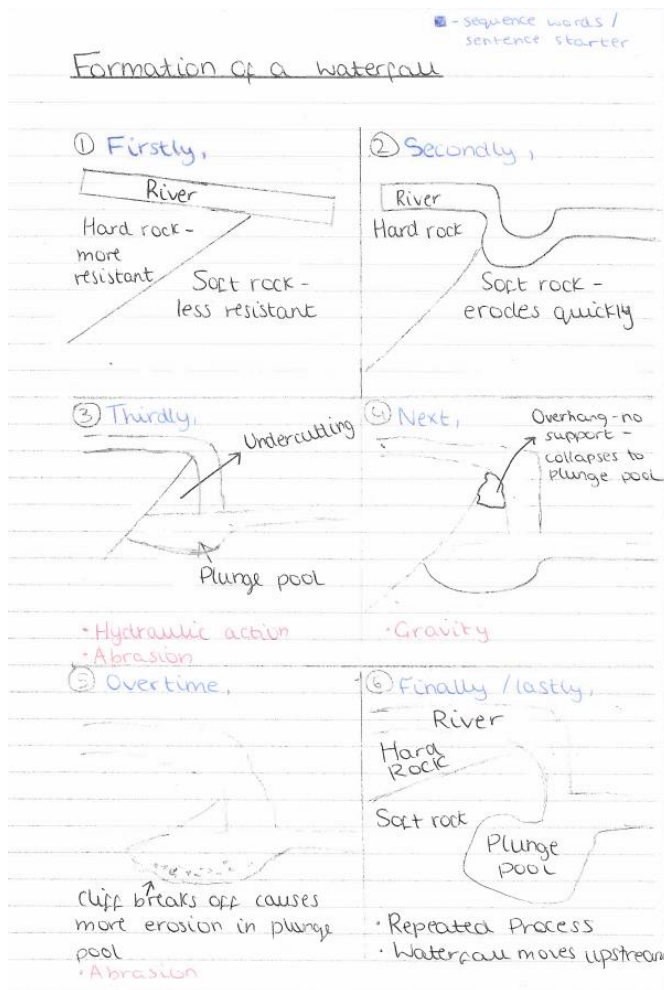 - sequence words /
sentence starter
Formation of a waterfall
① Firstly,
River
Hard rock -
more
resistant
Soft rock -
less resistant
② Secondly,
River
Hard rock
Soft rock -
erodes quickly
③ Thirdly,
Undercutting
Plunge pool
· Hydraulic action
· Abrasion
④ Next,
Overhang - no
support -
collapses to
plunge pool
· Gravity
⑤ Overtime,
Cliff breaks off causes
more erosion in plunge
pool
· Abrasion
⑥ Finally / lastly,
River
Hard
Rock
Soft rock
Plunge
pool
· Repeated Process
· Waterfall moves upstream